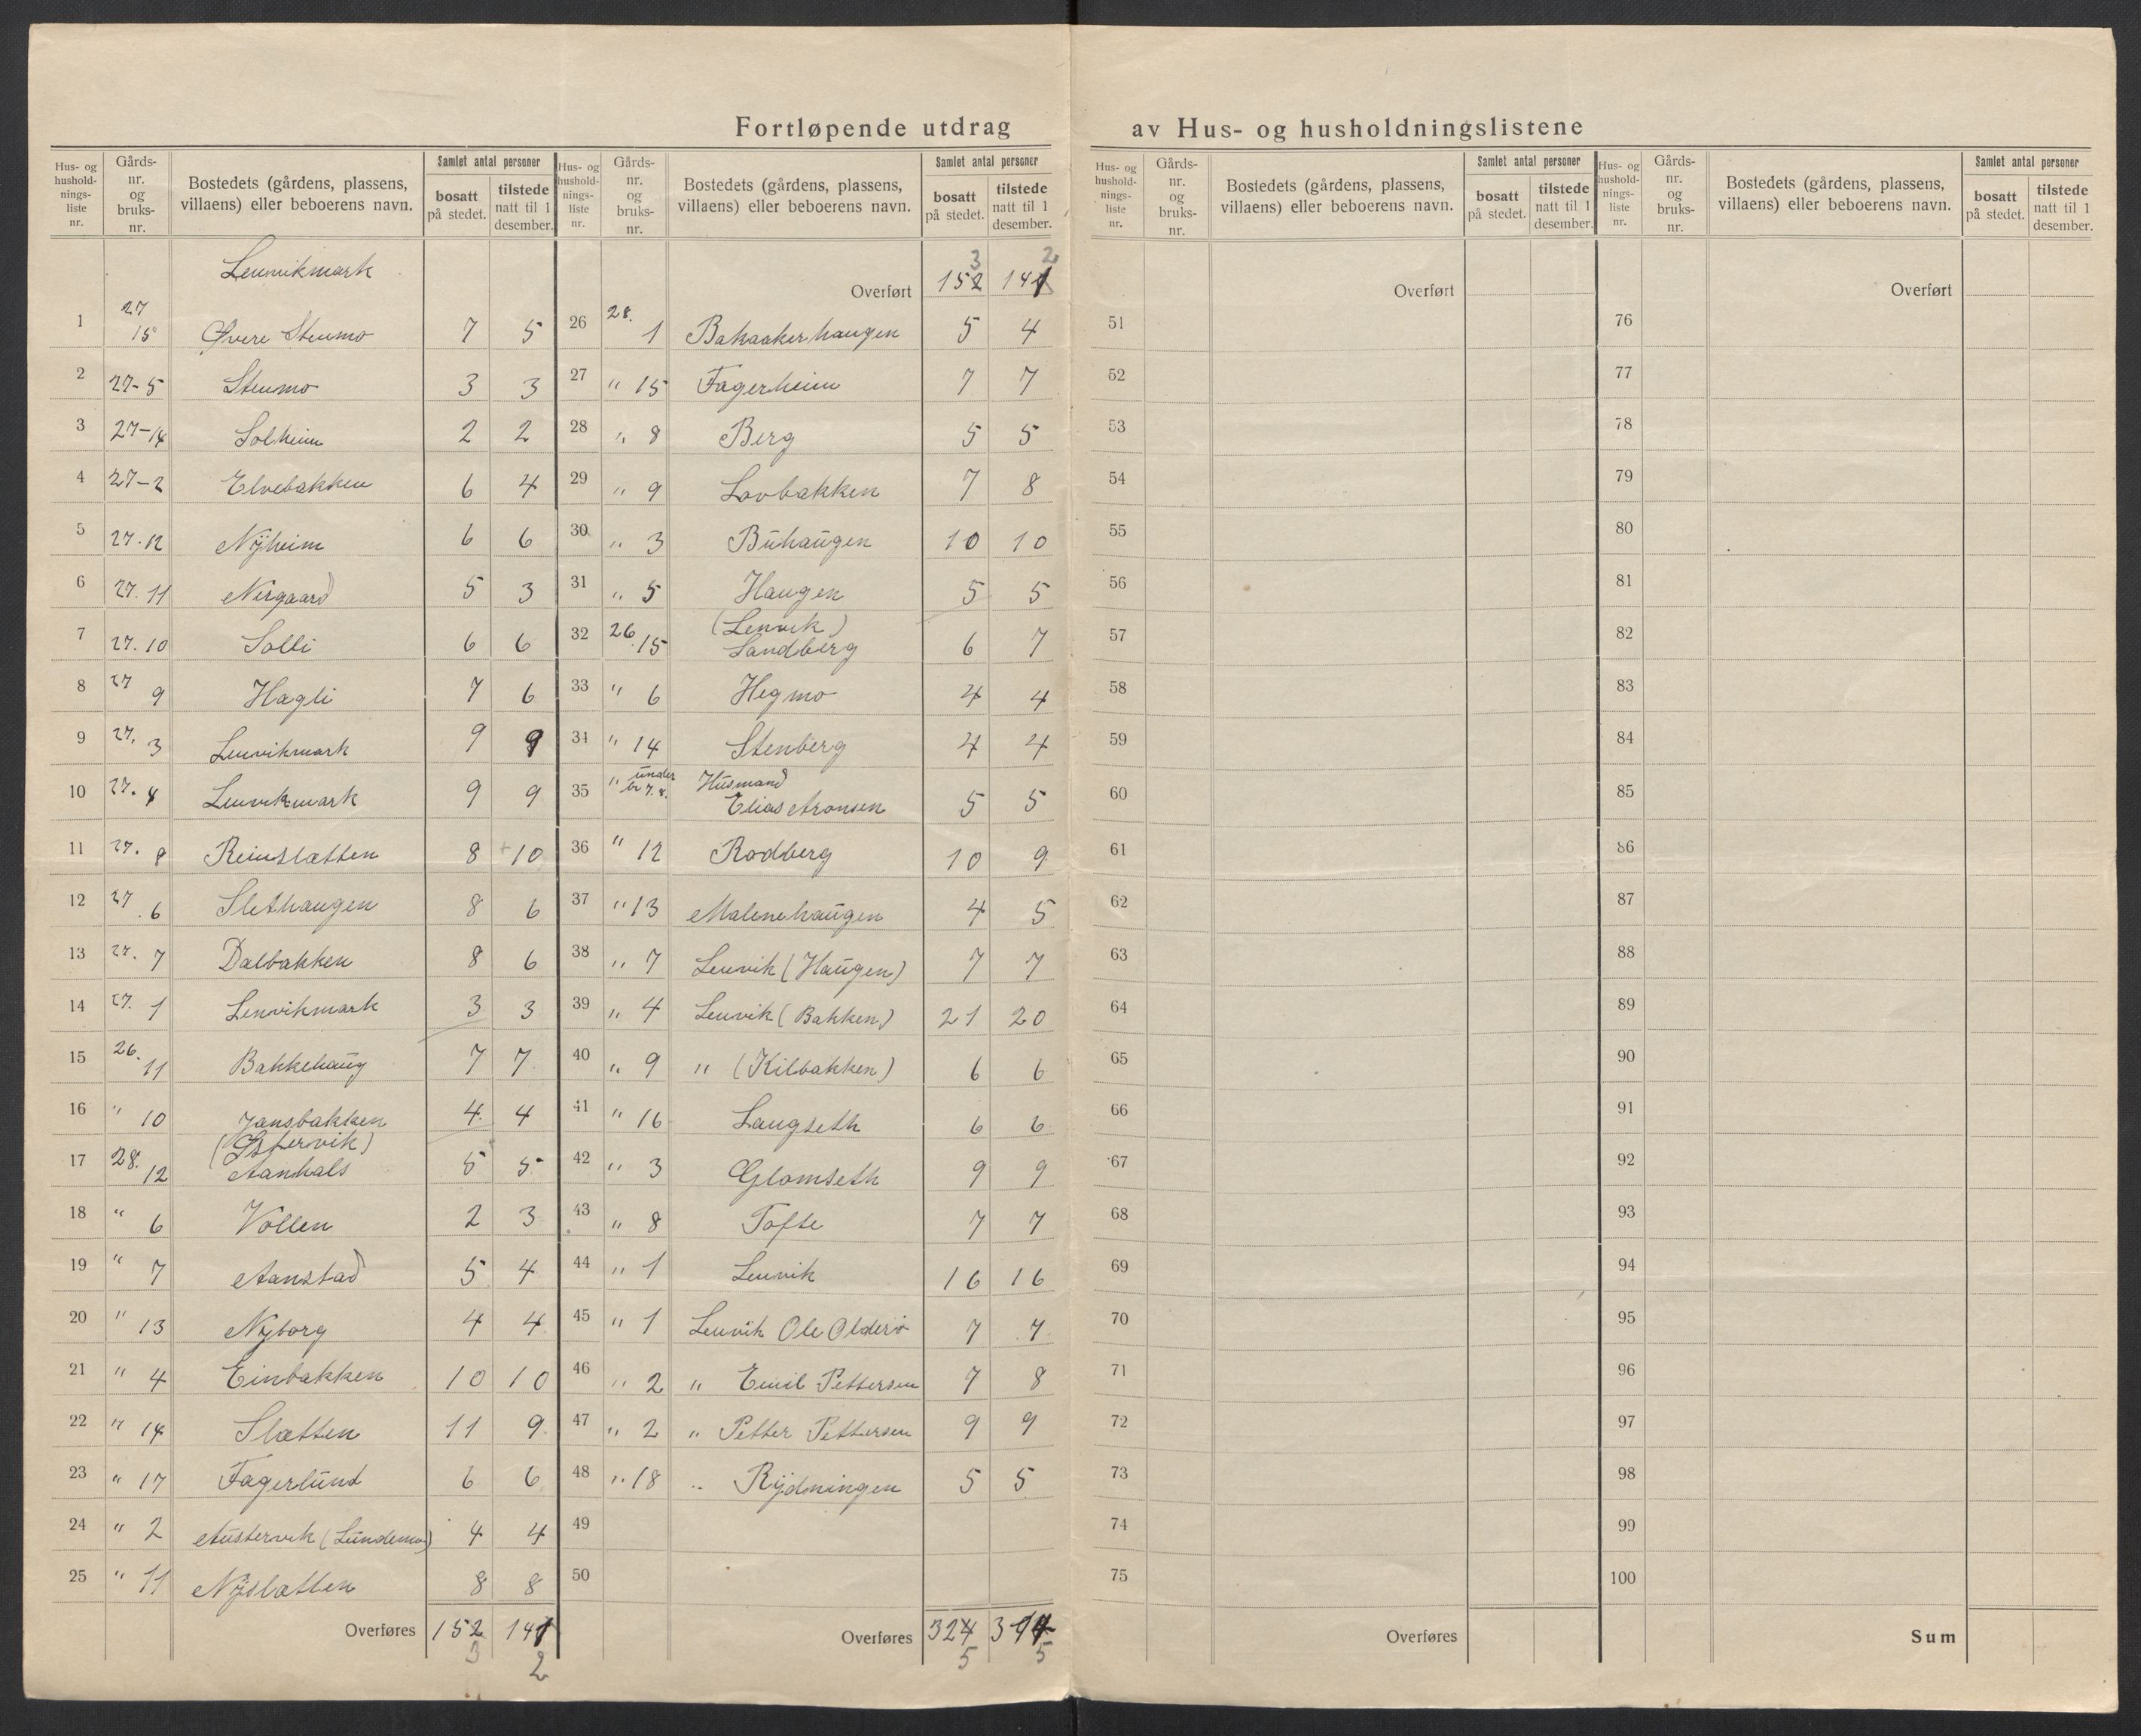 Fortløpende utdrag av Hus- og husholdningslistene
Hus- og husholdnings-liste nr. Gårds-nr. og bruks-nr. Bostedets (gårdens, plassens, villaens) eller beboerens navn. Samlet antal personer bosatt på stedet. tilstede natt til 1 desember.
Lenvikmark
1 27 15 Øvere Stenmo 7 5
2 27-5 Stenmo 3 3
3 27-14 Solheim 2 2
4 27-2 Elvebakken 6 4
5 27.12 Nÿheim 6 6
6 27.11 Nergaard 5 3
7 27.10 Solli 6 6
8 27 9 Hagli 7 6
9 27. 3 Lenvikmark 9 9
10 27. 4 Lenvikmark 9 9
11 27. 8 Reinslatten 8 +10
12 27. 6 Slethaugen 8 6
13 27. 7 Dalbakken 8 6
14 27. 1 Lenvikmark 3 3
15 26. 11 Bakkehaug 7 7
16 " 10 Jansbakken 4 4
(Østervik)
17 28. 12 Aanhals 5 5
18 " 6 Vollen 2 3
19 " 7 Aanstad 5 4
20 " 13 Nyborg 4 4
21 " 4 Einbakken 10 10
22 " 14 Slatten 11 9
23 " 17 Fagerlund 6 6
24 " 2 Austervik (Lundemo) 4 4
25 " 11 Nÿslatten 8 8
Overføres 152 141
3 2
Hus- og husholdnings-liste nr. Gårds-nr. og bruks-nr. Bostedets (gårdens, plassens, villaens) eller beboerens navn. Samlet antal personer bosatt på stedet. tilstede natt til 1 desember.
3 2
Overført 152 141
26 28. 1 Bakaakerhaugen 5 4
27 " 15 Fagerheim 7 7
28 " 8 Berg 5 5
29 " 9 Lovbakken 7 8
30 " 3 Buhaugen 10 10
31 " 5 Haugen 5 5
(Lenvik)
32 26 15 Sandberg 6 7
33 " 6 Hegmo 4 4
34 " 14 Stenberg 4 4
35 " under br 7.8. Husmand Elias Aronsen 5 5
36 " 12 Rodberg 10 9
37 " 13 Malenehaugen 4 5
38 " 7 Lenvik (Haugen) 7 7
39 " 4 Lenvik (Bakken) 21 20
40 " 9 " (Kilbakken) 6 6
41 " 16 Langseth 6 6
42 " 3 Glomseth 9 9
43 " 8 Tofte 7 7
44 " 1 Lenvik 16 16
45 " 1 Lenvik Ole Olderö 7 7
46 " 2 " Emil Pettersen 7 8
47 " 2 " Petter Pettersen 9 9
48 " 18 " Rÿdningen 5 5
49
50
Overføres 324 314
5 5
Hus- og husholdnings-liste nr. Gårds-nr. og bruks-nr. Bostedets (gårdens, plassens, villaens) eller beboerens navn. Samlet antal personer bosatt på stedet. tilstede natt til 1 desember.
Overført
51
52
53
54
55
56
57
58
59
60
61
62
63
64
65
66
67
68
69
70
71
72
73
74
75
Overføres
Hus- og husholdnings-liste nr. Gårds-nr. og bruks-nr. Bostedets (gårdens, plassens, villaens) eller beboerens navn. Samlet antal personer bosatt på stedet. tilstede natt til 1 desember.
Overført
76
77
78
79
80
81
82
83
84
85
86
87
88
89
90
91
92
93
94
95
96
97
98
99
100
Sum